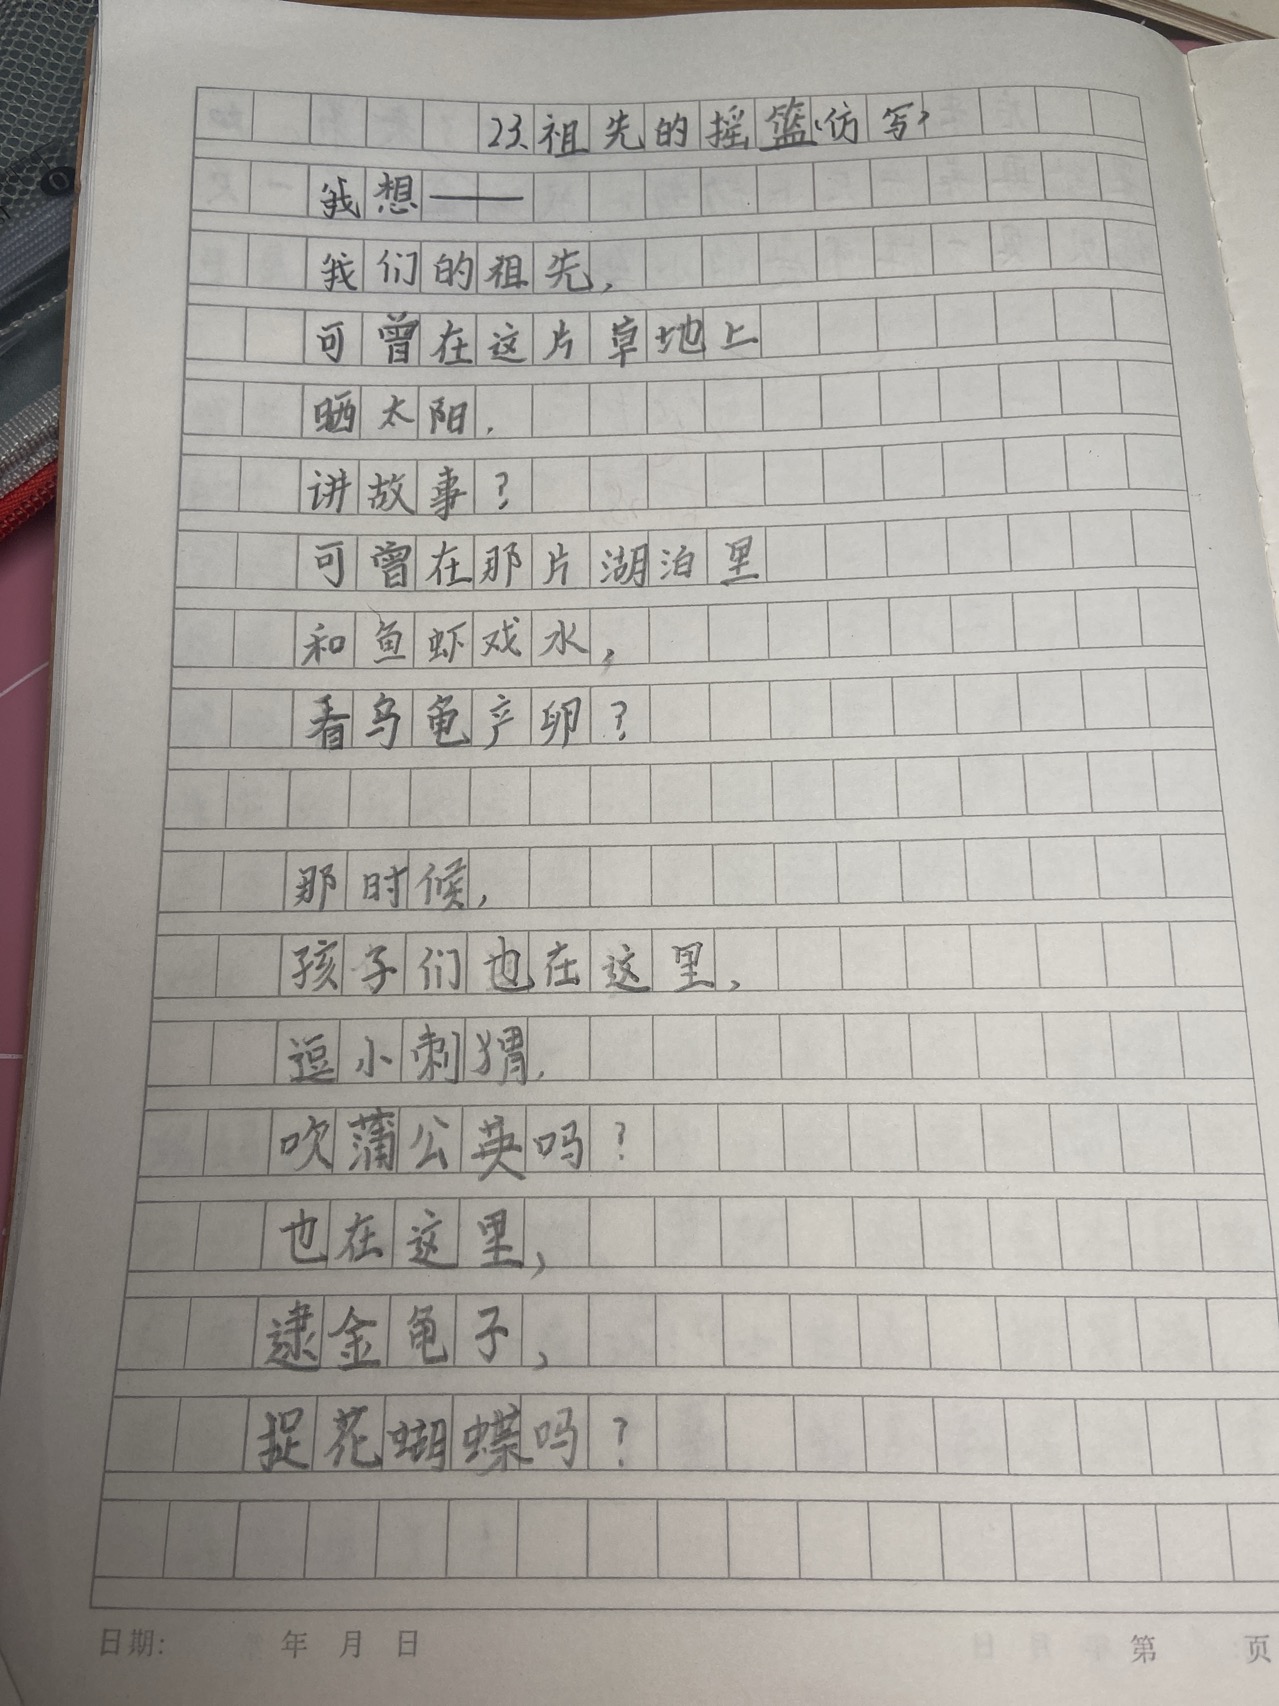 23、祖先的摇篮《仿写》
我想——
我们的祖先，
可曾在这片草地上
晒太阳，
讲故事？
可曾在那片湖泊里
和鱼虾戏水，
看乌龟产卵？
那时候，
孩子们也在这里，
逗小刺猬，
吹蒲公英吗？
也在这里，
逮金龟子，
捉花蝴蝶吗？
日期： 年 月 日 第 页